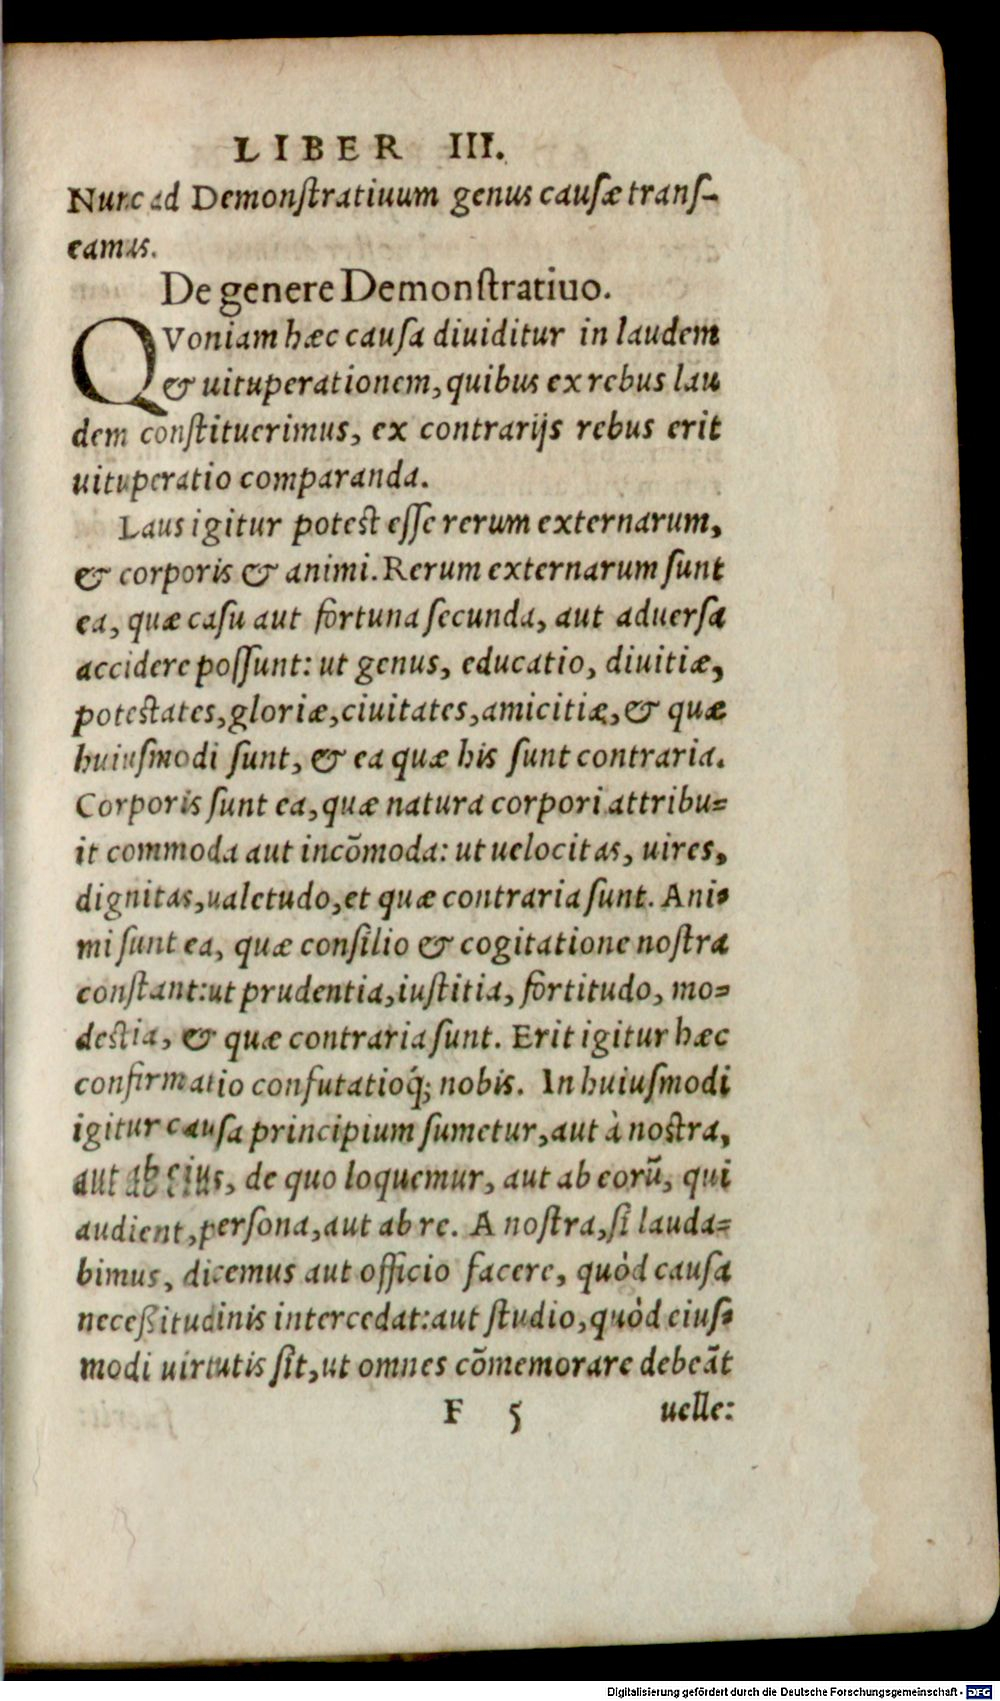 LIBER III.
Nunc ad Demonſtratiuum genus cauſæ tranſ-
eamus.
De genere Demonſtratiuo.
QVoniam hæc cauſa diuiditur in laudem
& uituperationem, quibus ex rebus lau
dem conſtituerimus, ex contrarijs rebus erit
uituperatio comparanda.
Laus igitur poteſt eſſe rerum externarum,
& corporis & animi. Rerum externarum ſunt
ea, quæ caſu aut fortuna ſecunda, aut aduerſa
accidere poſſunt: ut genus, educatio, diuitiæ,
poteſtates, gloriæ, ciuitates, amicitiæ, & quæ
huiuſmodi ſunt, & ea quæ his ſunt contraria.
Corporis ſunt ea, quæ natura corpori attribu-
it commoda aut incōmoda: ut uelocitas, uires,
dignitas, ualetudo, et quæ contraria ſunt. Ani-
mi ſunt ea, quæ conſilio & cogitatione noſtra
conſtant: ut prudentia, iuſtitia, fortitudo, mo-
deſtia, & quæ contraria ſunt. Erit igitur hæc
confirmatio confutatioq́; nobis. In huiuſmodi
igitur cauſa principium ſumetur, aut à noſtra,
aut ab eius, de quo loquemur, aut ab eorū, qui
audient, perſona, aut ab re. A noſtra, ſi lauda-
bimus, dicemus aut officio facere, quòd cauſa
neceßitudinis intercedat: aut ſtudio, quòd eiuſ-
modi uirtutis ſit, ut omnes cōmemorare debeāt
F 5 uelle:
Digitalisierung gefördert durch die Deutsche Forschungsgemeinschaft - DFG